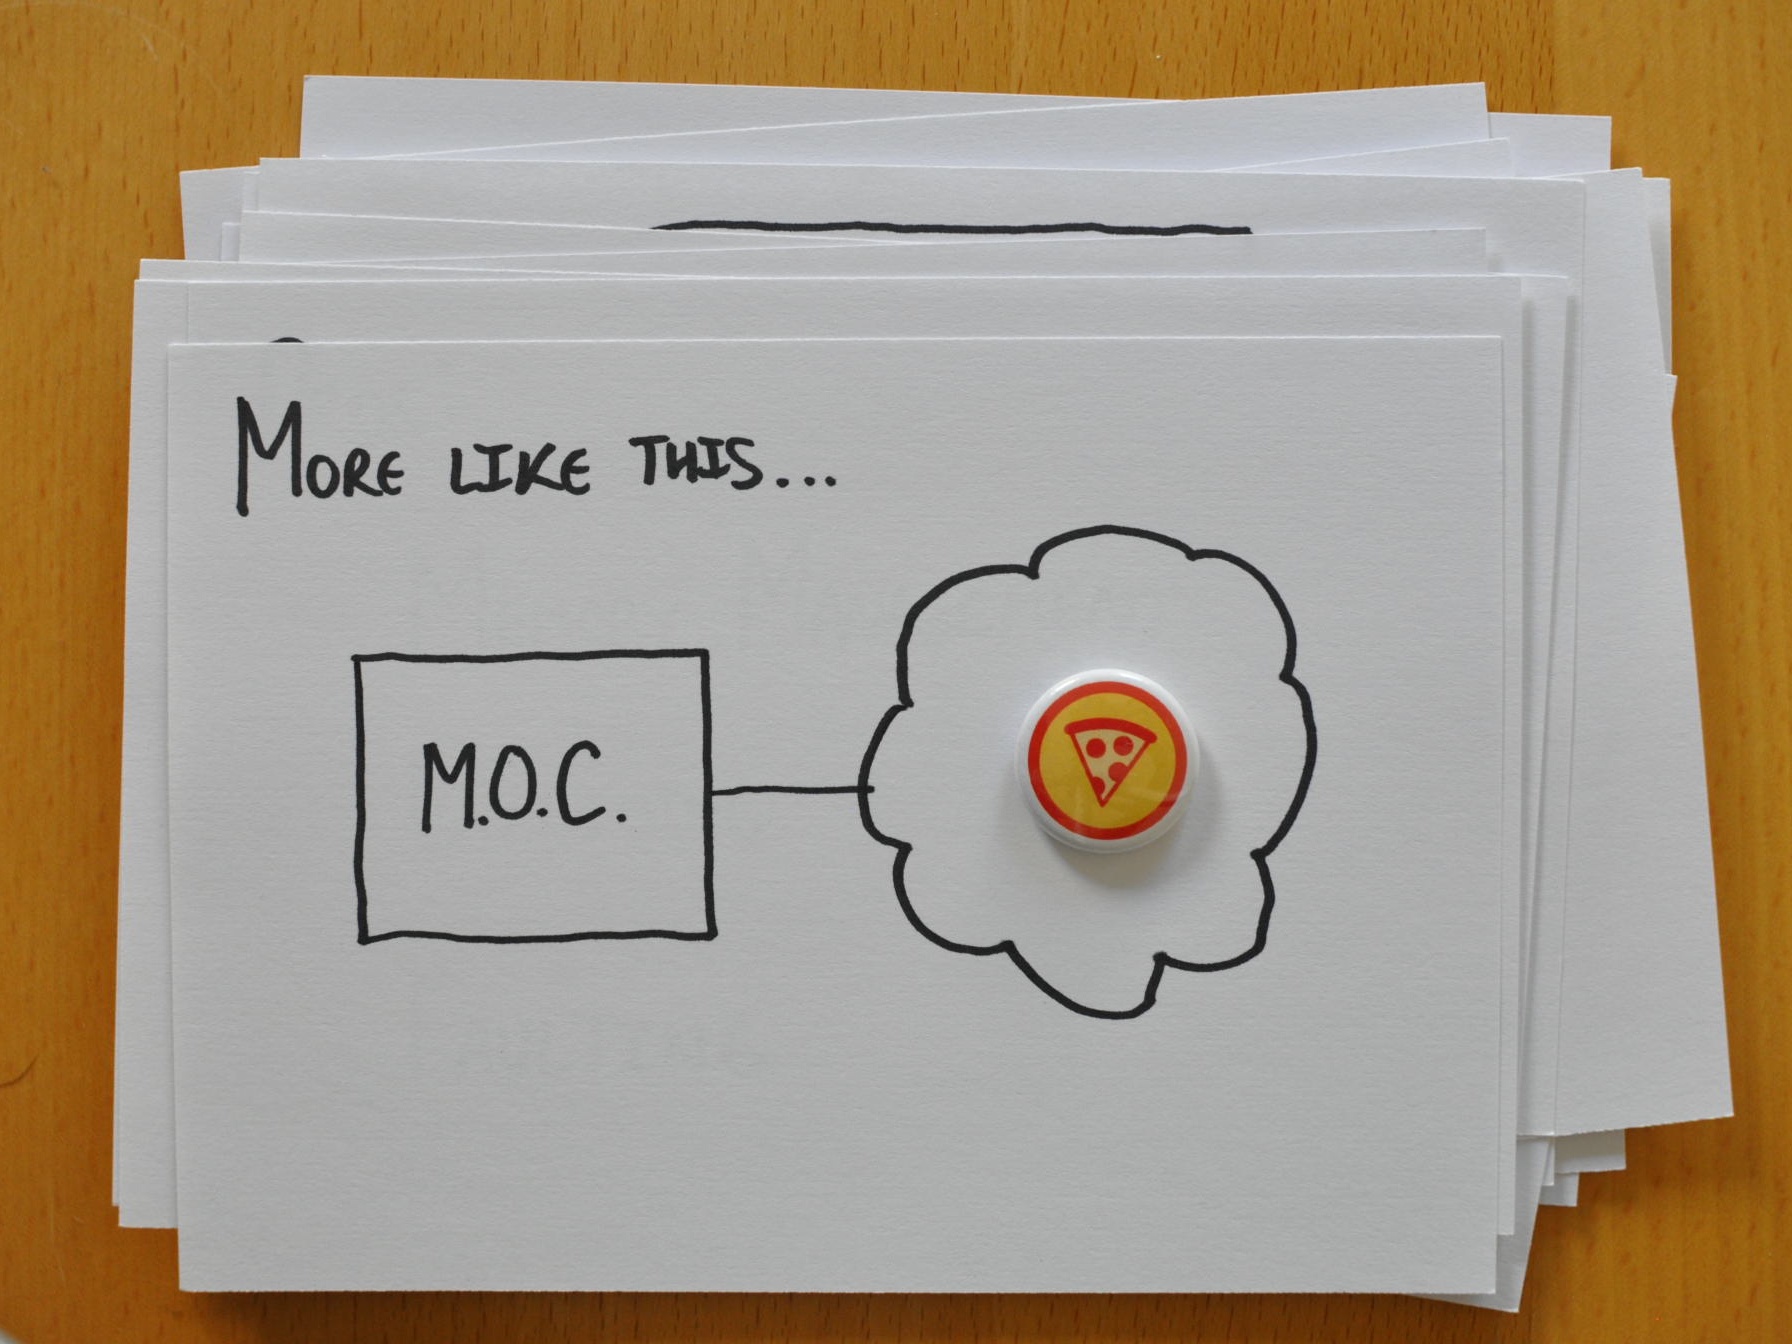 More like this...
M.O.C.